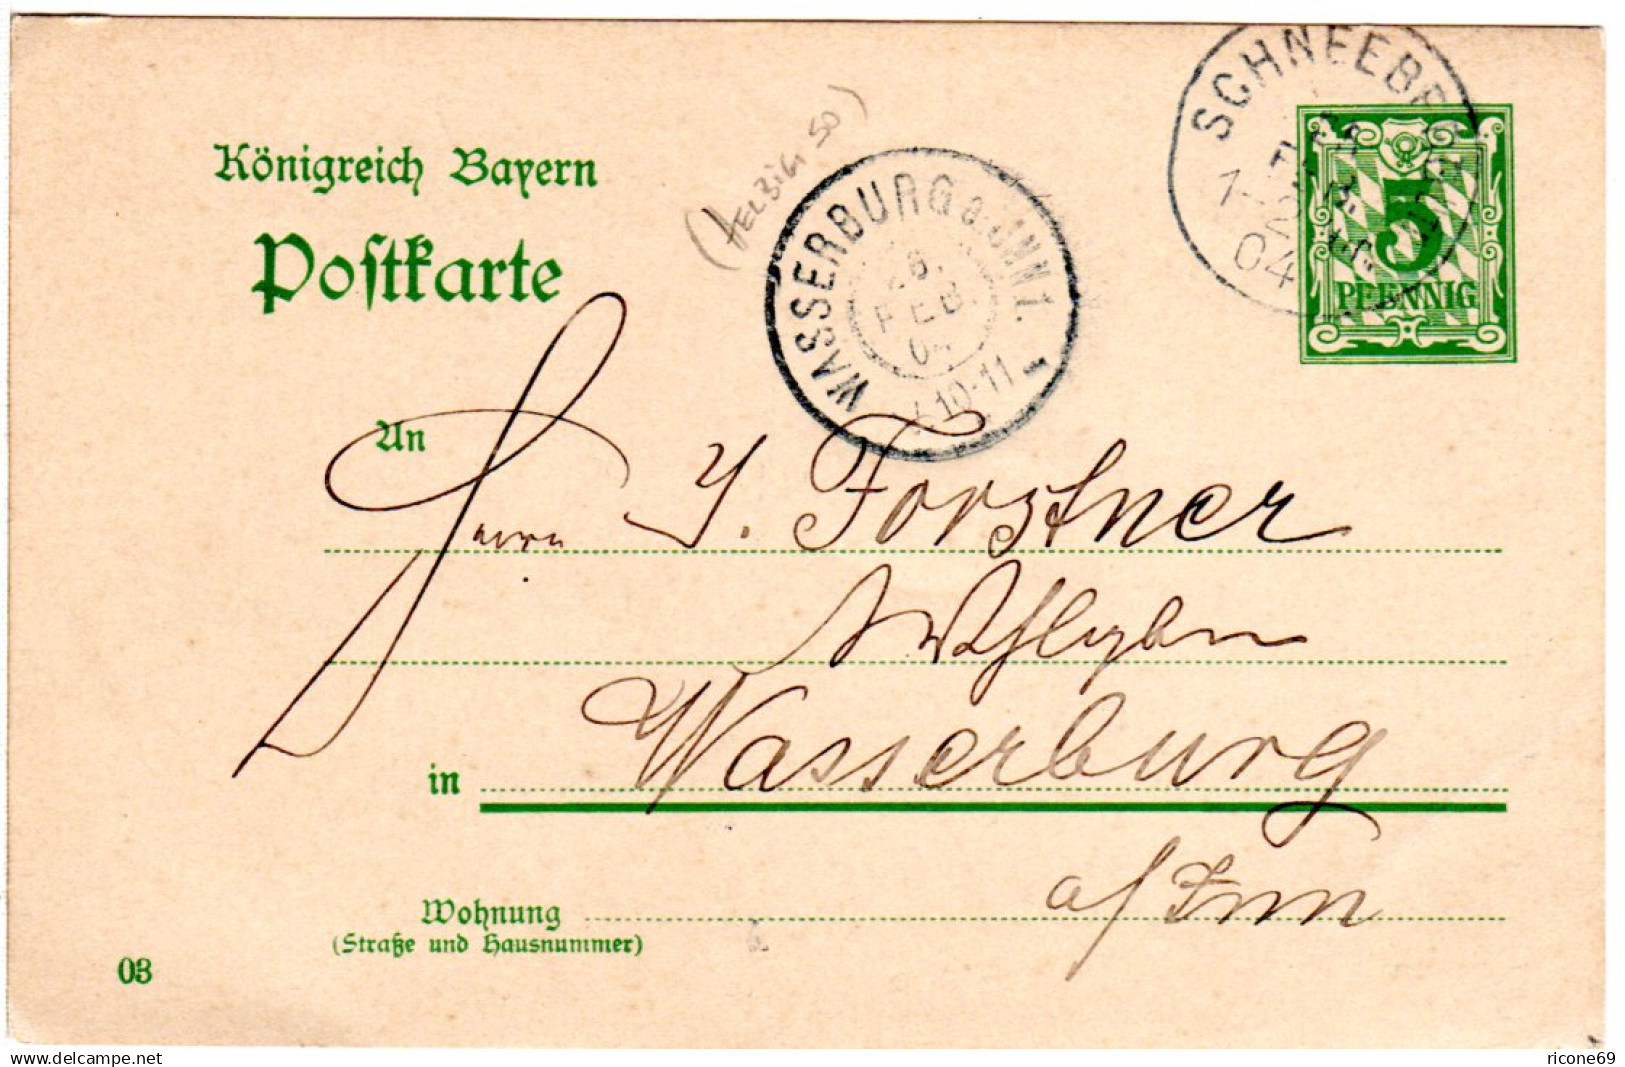 Königreich Bayern
Postkarte
(HELBIG 50)
WASSERBURG a. INN 1.
26.
FEB.
04
10-11
SCHNEEB
04
5
PFENNIG
An
Herrn J. Forstner
in Wasserburg
a/Inn
Wohnung
(Straße und Hausnummer)
03
delcampe.net
ricone69